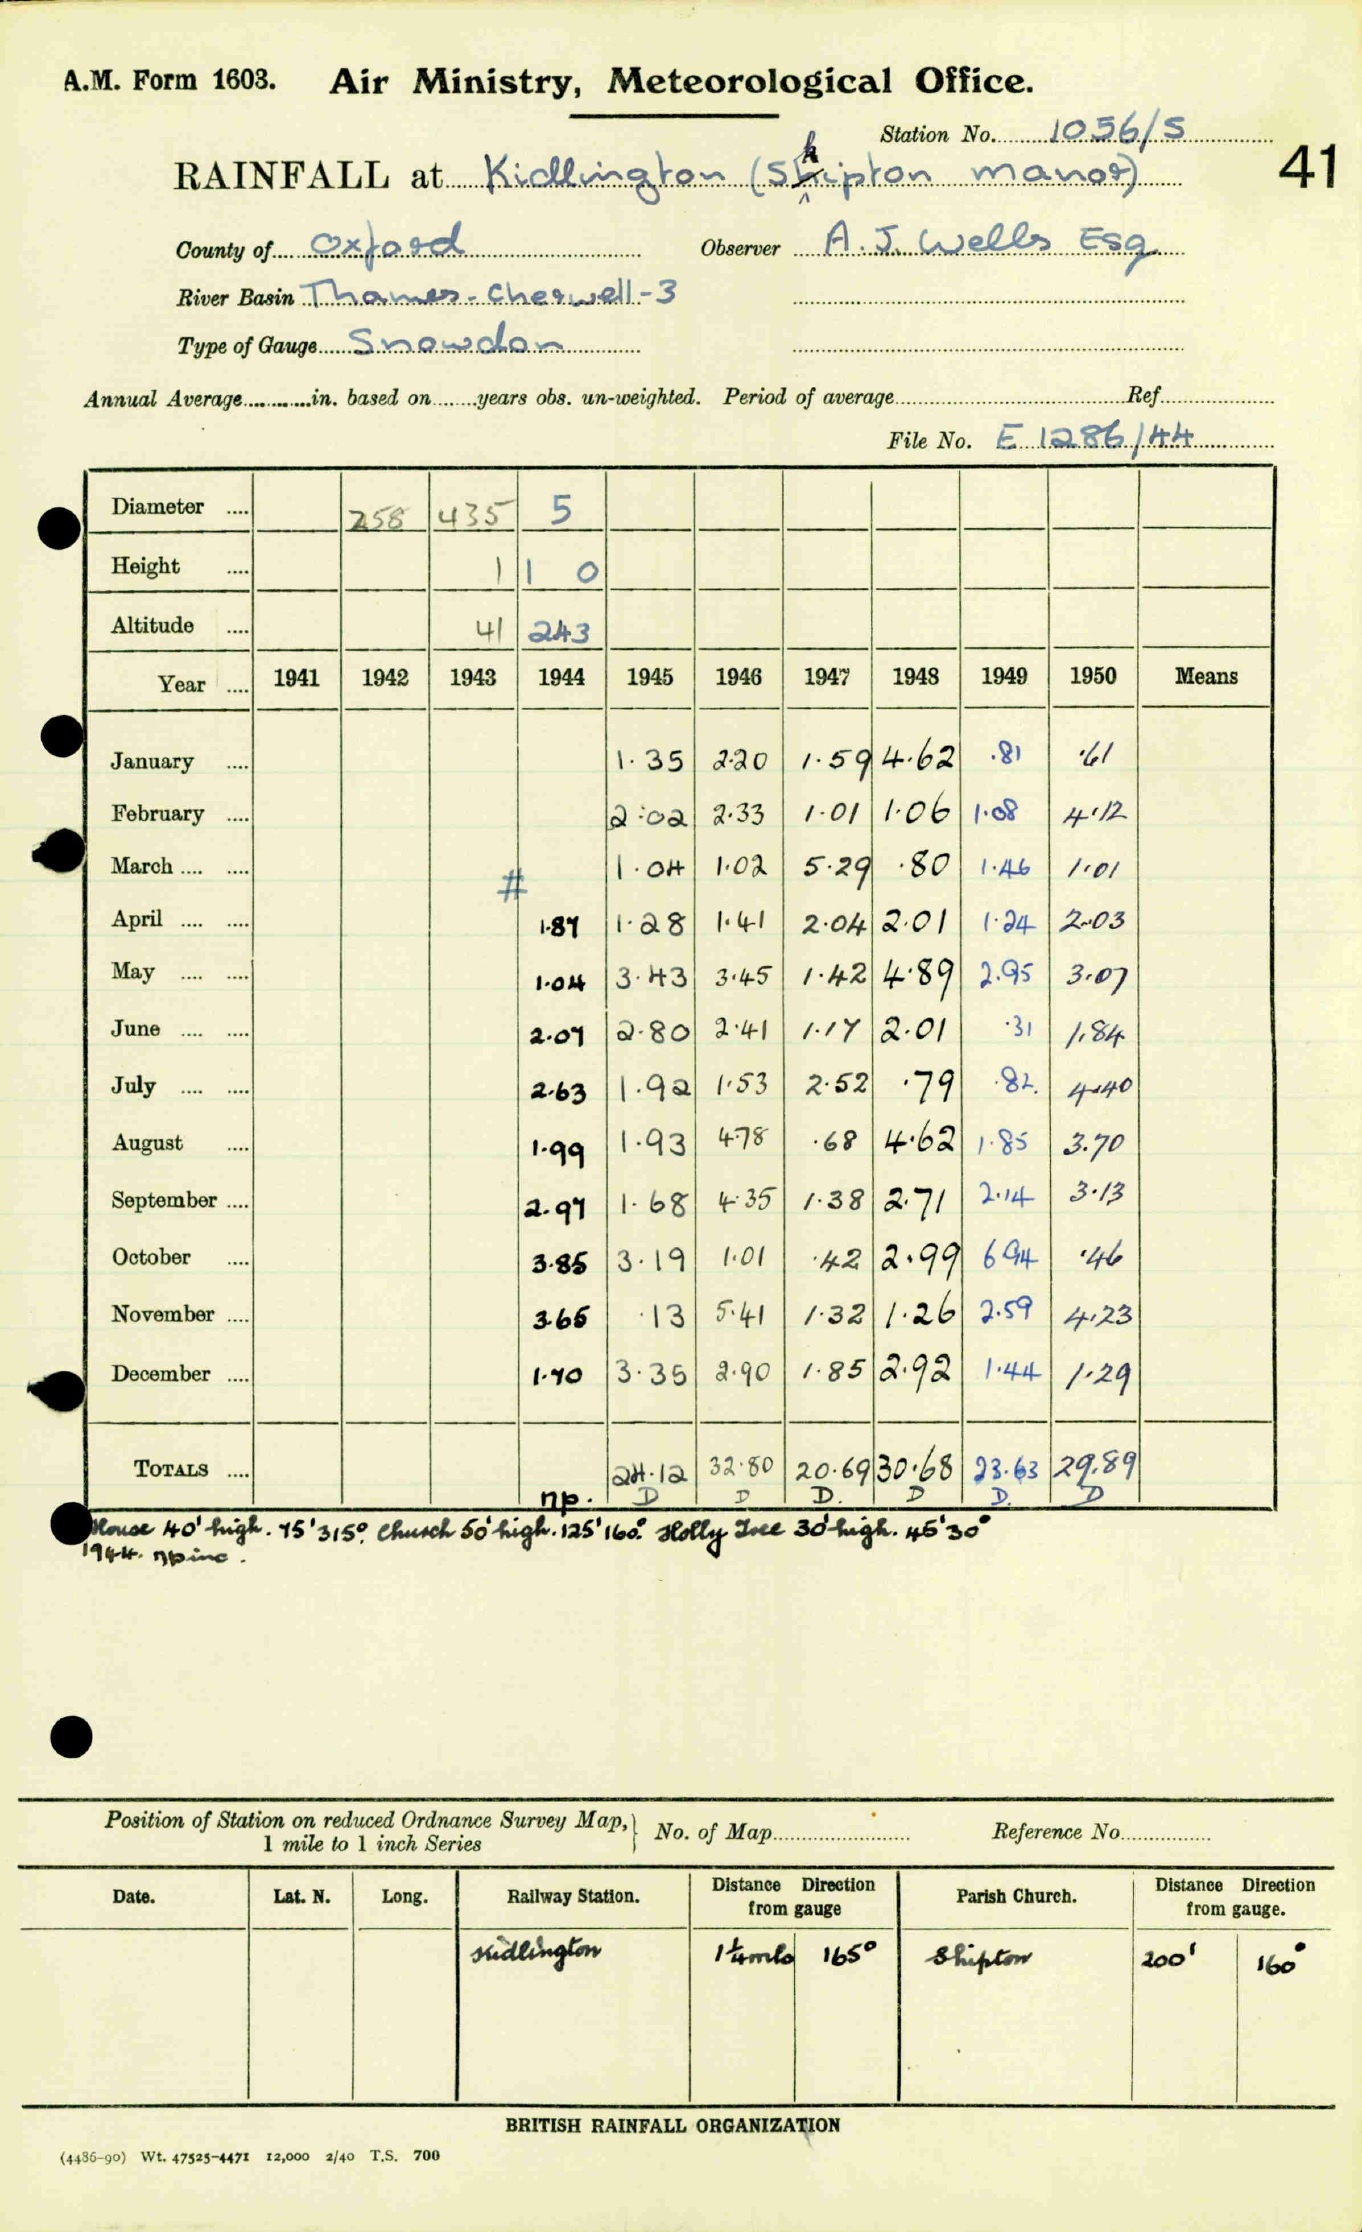 A.M. Form 1603. Air Ministry, Meteorological Office.
Station No. 1056/5
41
RAINFALL at Kidlington (Shipton manor)
County of Oxford Observer A. J. Wells Esq
River Basin Thames - Cherwell - 3
Type of Gauge Snowdon
Annual Average in. based on years obs. un-weighted. Period of average Ref.
File No. E 1286/44
Diameter 258 435 5
Height 1 1 0
Altitude 41 243
Year 1941 1942 1943 1944 1945 1946 1947 1948 1949 1950 Means
January 1.35 2.20 1.59 4.62 .81 .61
February 2.02 2.33 1.01 1.06 1.08 4.12
March # 1.04 1.02 5.29 .80 1.46 1.01
April 1.87 1.28 1.41 2.04 2.01 1.24 2.03
May 1.04 3.43 3.45 1.42 4.89 2.95 3.07
June 2.07 2.80 2.41 1.17 2.01 .31 1.84
July 2.63 1.92 1.53 2.52 .79 .82. 4.40
August 1.99 1.93 4.78 .68 4.62 1.85 3.70
September 2.97 1.68 4.35 1.38 2.71 2.14 3.13
October 3.85 3.19 1.01 .42 2.99 6.94 .46
November 3.65 .13 5.41 1.32 1.26 2.59 4.23
December 1.70 3.35 2.90 1.85 2.92 1.44 1.29
TOTALS 24.12 32.80 20.69 30.68 23.63 29.89
np. D D D. D D. D
House 40' high. 75' 315°. Church 50' high. 125' 160°. Holly Tree 30' high. 45' 30°
1944. np inc.
Position of Station on reduced Ordnance Survey Map, 1 mile to 1 inch Series } No. of Map Reference No.
Date. Lat. N. Long. Railway Station. Distance Direction from gauge Parish Church. Distance Direction from gauge.
Kidlington 1¼ mls 165° Shipton 200' 160°
BRITISH RAINFALL ORGANIZATION
(4486-90) Wt. 47525-4471 12,000 2/40 T.S. 700